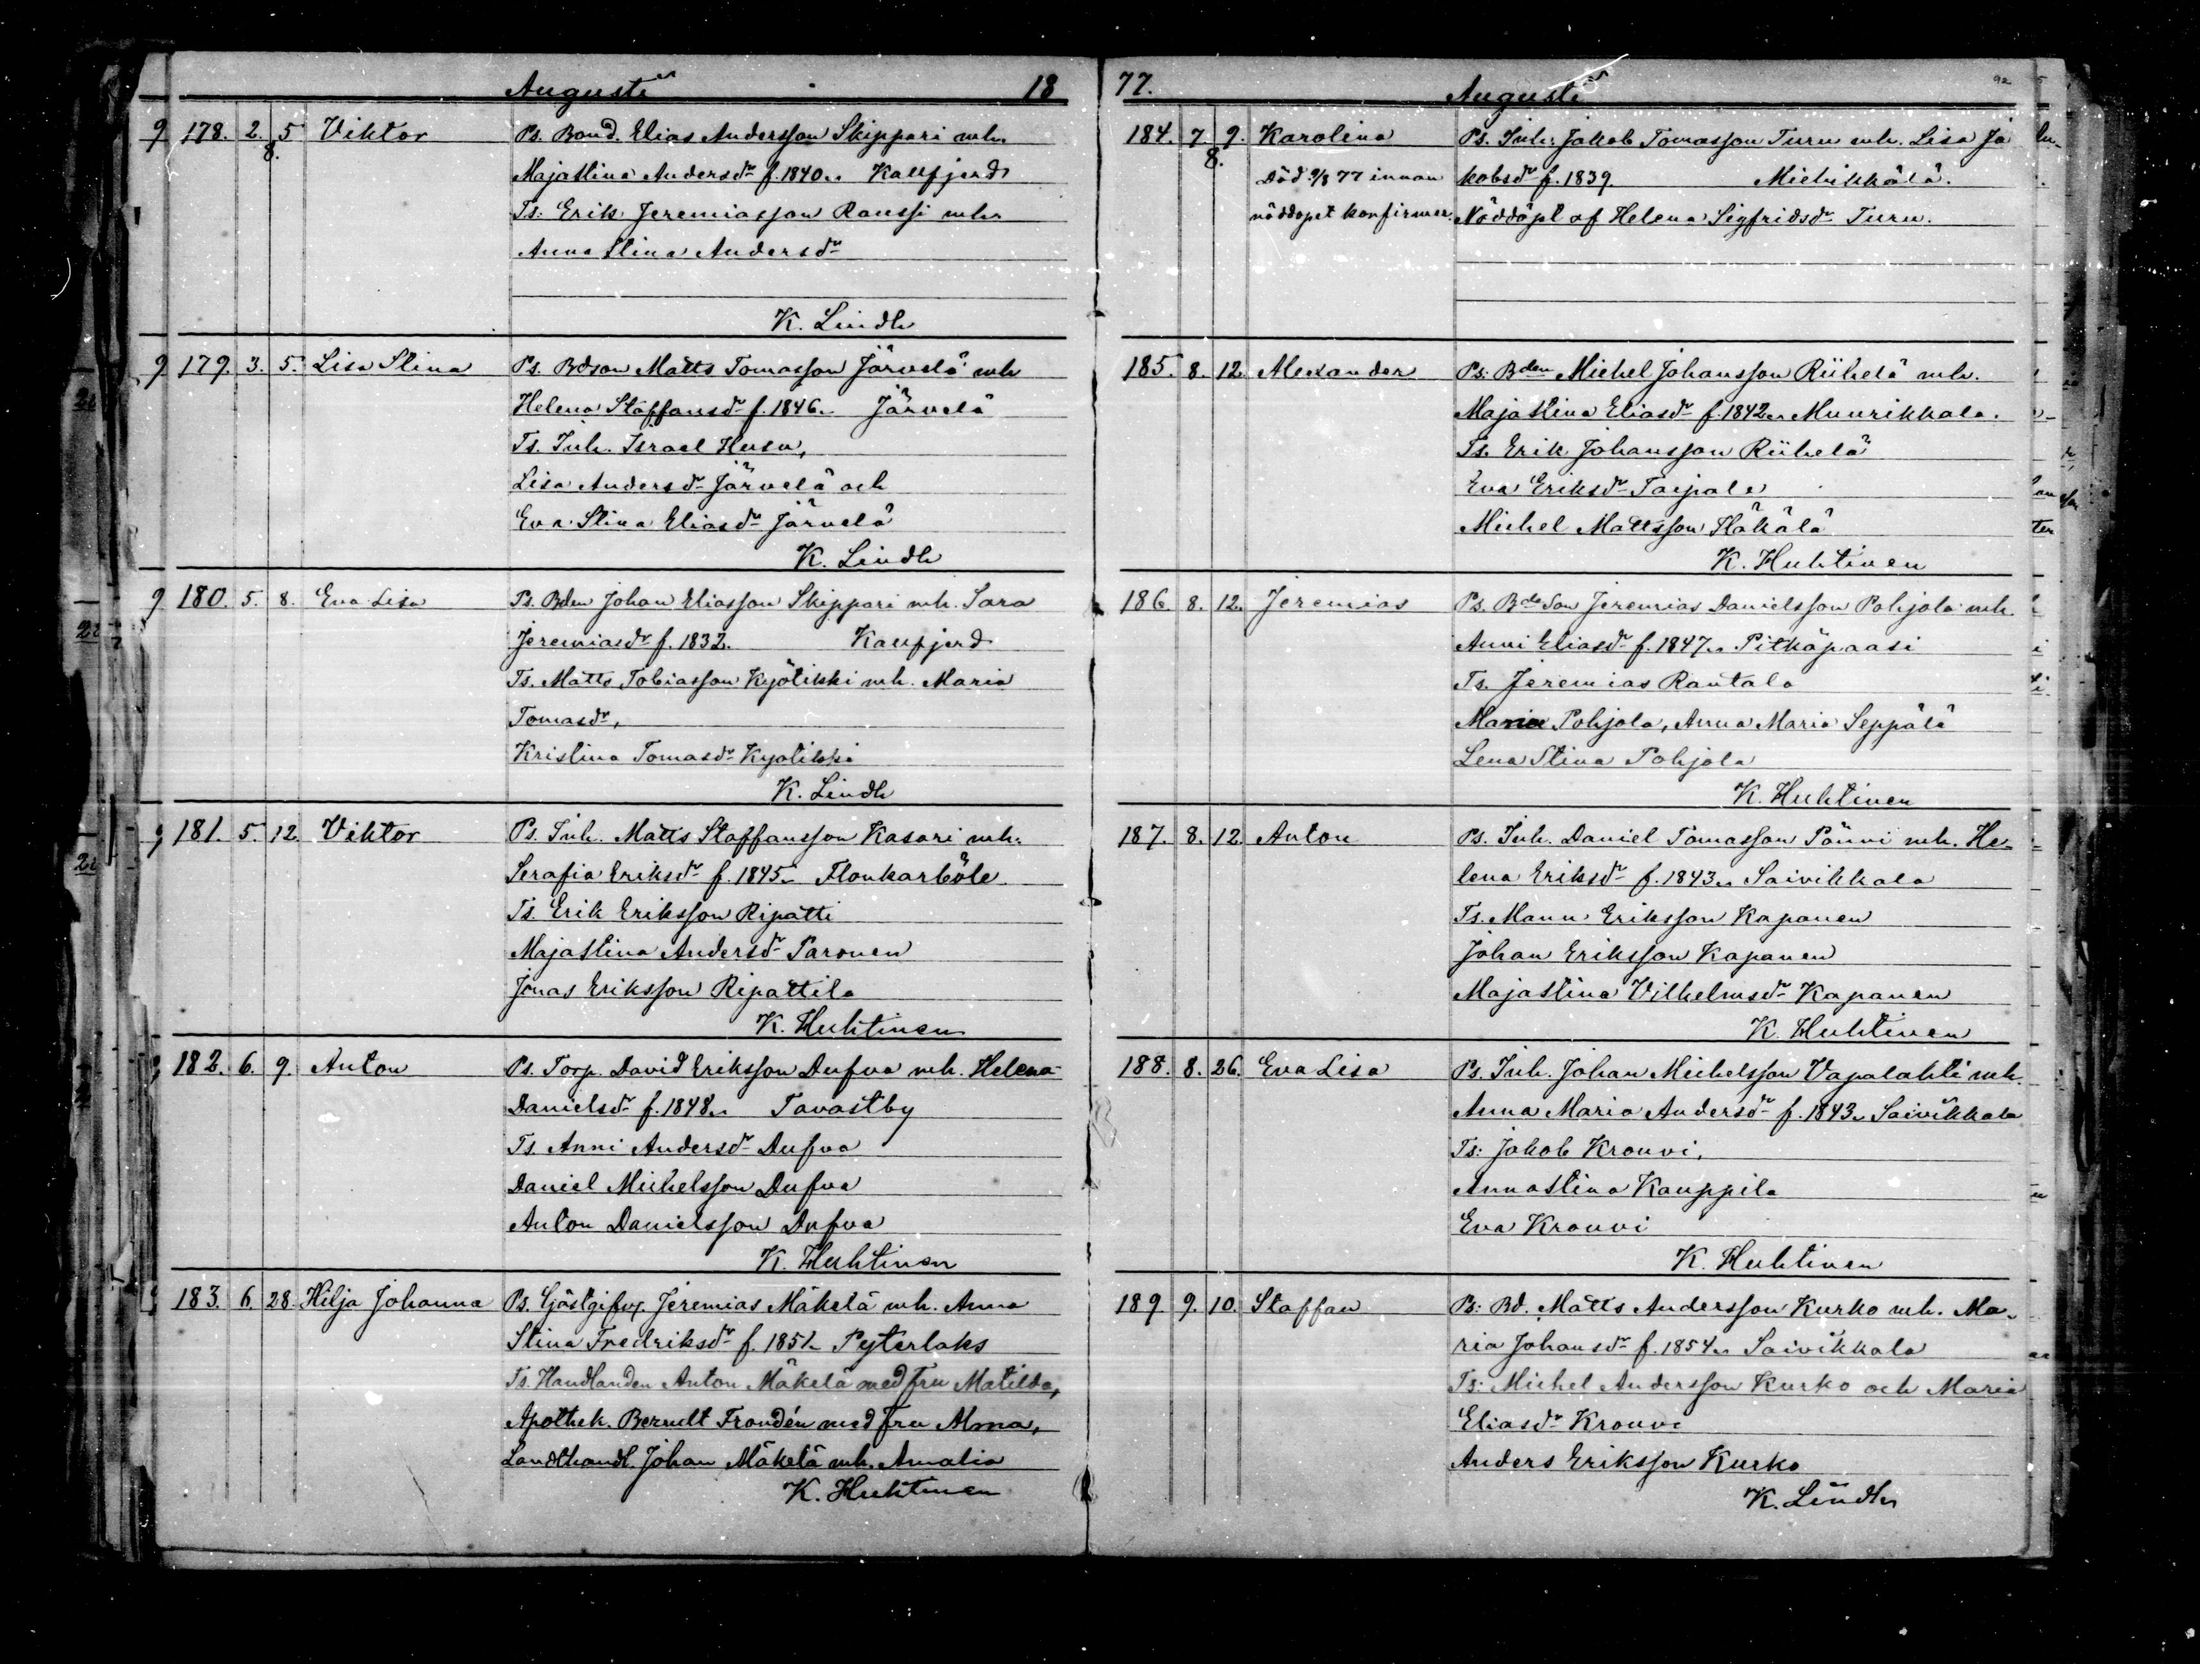 Augusti 18
178. 2. 5 Viktor Ps. Bond. Elias Andersson Skippari mh.
8.
Majastina Andersdr f. 1840. Kallfjerd
Ts. Erik Jeremiasson Raussi mhu
Anna Stina Andersdr
K. Lindh
179. 3. 5. Lisa Stina Ps. Bdson Matts Tomasson Järvelä mh
Helena Staffansdr f. 1846. Järvelä
Ts. Inh. Israel Husu,
Lisa Andersdr Järvelä och
Eva Stina Eliasdr Järvelä
K. Lindh
180. 5. 8. Eva Lisa Ps. Bden Johan Eliasson Skippari mh. Sara
Jeremiasdr f. 1832. Kallfjerd
Ts. Matts Tobiasson Kyötikki mh. Maria
Tomasdr,
Kristina Tomasdr Kyötikki
K. Lindh
181. 5. 12. Viktor Ps. Inh. Matts Staffansson Kasari mh.
Serafia Eriksdr f. 1845. Flonkarböle
Ts. Erik Eriksson Ripatti
Majastina Andersdr Paronen
Jonas Eriksson Ripattila
K. Huhtinen
182. 6. 9. Anton Ps. Torp. David Eriksson Dufva mh. Helena
Danielsdr f. 1848. Tavastby
Ts. Anni Andersdr Dufva
Daniel Michelsson Dufva
Anton Danielsson Dufva
K. Huhtinen
183. 6. 28. Hilja Johanna Ps. Gästgifvr. Jeremias Mäkelä mh. Anna
Stina Fredriksdr f. 1851. Pyterlaks
Ts. Handlanden Anton Mäkelä med fru Matilda,
Apothek. Berndt Frondén med fru Alma,
Landthandl. Johan Mäkelä mh. Amalia
K. Huhtinen
77. Augusti 92
184. 7 9. Karolina Ps. Inh. Jakob Tomasson Turu mh. Lisa Ja
8.
Död 9/8 77 innan kobsdr f. 1839. Miehikkälä.
nöddopet konfirmer. Nöddöpt af Helena Sigfridsdr Turu.
185. 8. 12. Alexander Ps. Bden Michel Johansson Riihelä mh.
Majastina Eliasdr f. 1842. Muurikkala.
Ts. Erik Johansson Riihelä
Eva Eriksdr Taipale
Michel Mattsson Häkälä
K. Huhtinen
186. 8. 12. Jeremias Ps. Bdeson Jeremias Danielsson Pohjola mh.
Anni Eliasdr f. 1847. Pitkäpaasi
Ts. Jeremias Rantala
Maria Pohjola, Anna Maria Seppälä
Lena Stina Pohjola
K. Huhtinen
187. 8. 12. Anton Ps. Inh. Daniel Tomasson Pönni mh. He-
lena Eriksdr f. 1843. Saivikkala
Ts. Mann Eriksson Kapanen
Johan Eriksson Kapanen
Majastina Vilhelmsdr Kapanen
K. Huhtinen
188. 8. 26. Eva Lisa Ps. Inh. Johan Michelsson Vapalahti mh.
Anna Maria Andersdr f. 1843. Saivikkala
Ts: Jakob Krouvi,
Annastina Kauppila
Eva Krouvi
K. Huhtinen
189. 9. 10. Staffan Ps: Bd. Matts Andersson Kurko mh. Ma-
ria Johansdr f. 1854. Saivikkala
Ts: Michel Andersson Kurko och Maria
Eliasdr Krouvi
Anders Eriksson Kurko
K. Lindh